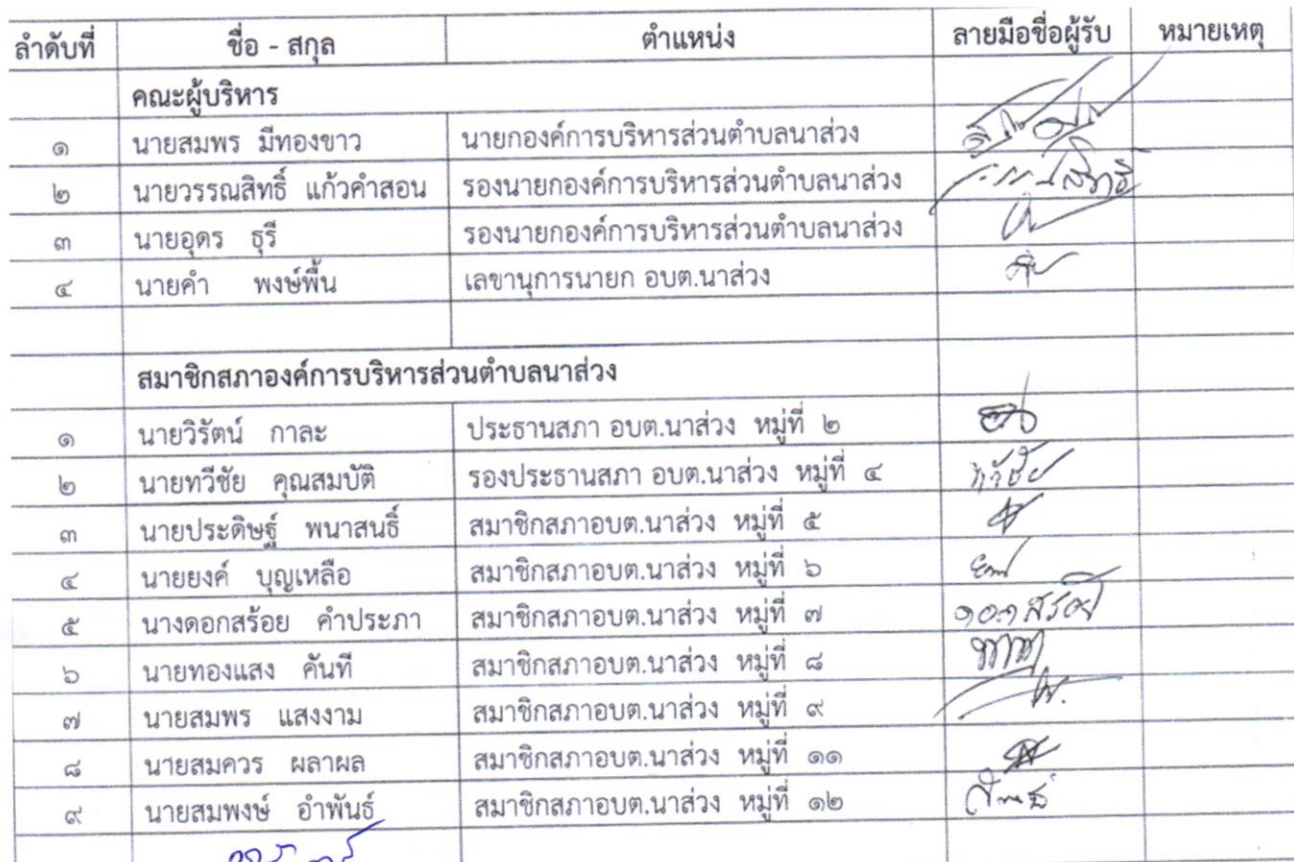 ลำดับที่ ชื่อ - สกุล ตำแหน่ง ลายมือชื่อผู้รับ หมายเหตุ
คณะผู้บริหาร
๑ นายสมพร มีทองขาว นายกองค์การบริหารส่วนตำบลนาส่วง
๒ นายวรรณสิทธิ์ แก้วคำสอน รองนายกองค์การบริหารส่วนตำบลนาส่วง
๓ นายอุดร ธุรี รองนายกองค์การบริหารส่วนตำบลนาส่วง
๔ นายคำ พงษ์พื้น เลขานุการนายก อบต.นาส่วง
สมาชิกสภาองค์การบริหารส่วนตำบลนาส่วง
๑ นายวิรัตน์ กาละ ประธานสภา อบต.นาส่วง หมู่ที่ ๒
๒ นายทวีชัย คุณสมบัติ รองประธานสภา อบต.นาส่วง หมู่ที่ ๔ ทวีชัย
๓ นายประดิษฐ์ พนาสนธิ์ สมาชิกสภาอบต.นาส่วง หมู่ที่ ๕
๔ นายยงค์ บุญเหลือ สมาชิกสภาอบต.นาส่วง หมู่ที่ ๖
๕ นางดอกสร้อย คำประภา สมาชิกสภาอบต.นาส่วง หมู่ที่ ๗ ดอกสร้อย
๖ นายทองแสง คันที สมาชิกสภาอบต.นาส่วง หมู่ที่ ๘
๗ นายสมพร แสงงาม สมาชิกสภาอบต.นาส่วง หมู่ที่ ๙
๘ นายสมควร ผลาผล สมาชิกสภาอบต.นาส่วง หมู่ที่ ๑๑
๙ นายสมพงษ์ อำพันธ์ สมาชิกสภาอบต.นาส่วง หมู่ที่ ๑๒